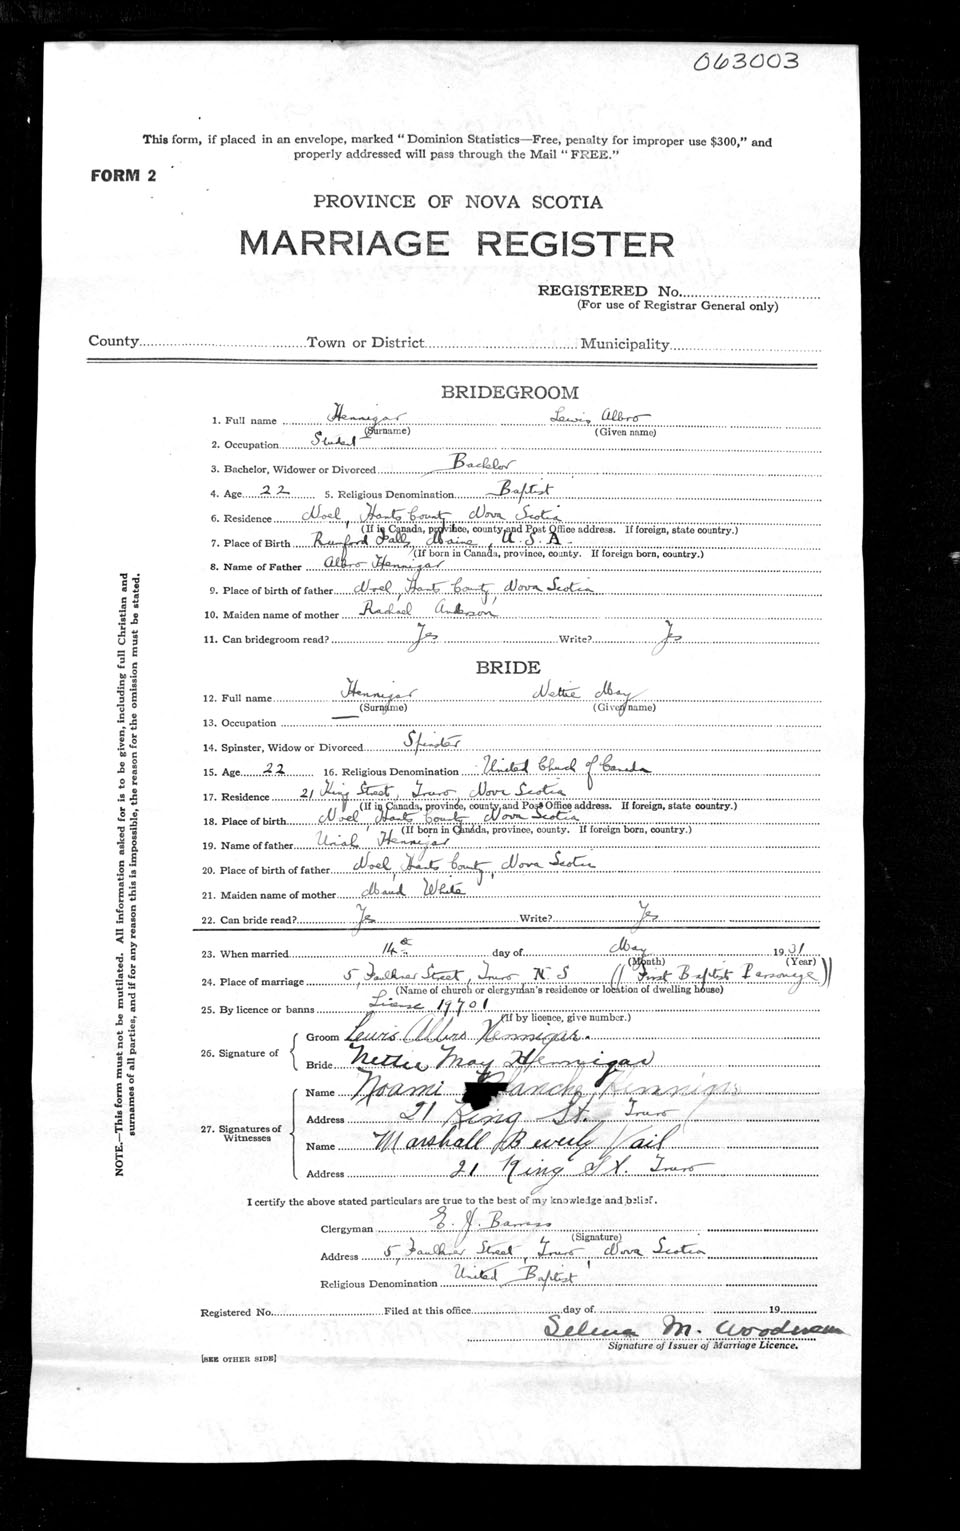 063003
This form, if placed in an envelope, marked "Dominion Statistics—Free, penalty for improper use $300," and
properly addressed will pass through the Mail "FREE."
FORM 2
PROVINCE OF NOVA SCOTIA
MARRIAGE REGISTER
REGISTERED No.
(For use of Registrar General only)
County Town or District Municipality
BRIDEGROOM
1. Full name Hennigar Lewis Albro
(Surname) (Given name)
2. Occupation Student
3. Bachelor, Widower or Divorced Bachelor
4. Age 22 5. Religious Denomination Baptist
6. Residence Noel, Hants County Nova Scotia
(If in Canada, province, county and Post Office address. If foreign, state country.)
7. Place of Birth Rumford Falls, Maine, U.S.A.
(If born in Canada, province, county. If foreign born, country.)
8. Name of Father Albro Hennigar
9. Place of birth of father Noel, Hants County, Nova Scotia
10. Maiden name of mother Rachael Anderson
11. Can bridegroom read? Yes Write? Yes
BRIDE
12. Full name Hennigar Nettie May
(Surname) (Given name)
13. Occupation —
14. Spinster, Widow or Divorced Spinster
15. Age 22 16. Religious Denomination United Church of Canada
17. Residence 21 King Street, Truro Nova Scotia
(If in Canada, province, county and Post Office address. If foreign, state country.)
18. Place of birth Noel, Hants County, Nova Scotia
(If born in Canada, province, county. If foreign born, country.)
19. Name of father Uriah Hennigar
20. Place of birth of father Noel, Hants County, Nova Scotia
21. Maiden name of mother Maud White
22. Can bride read? Yes Write? Yes
23. When married 14th day of May 1931
(Month) (Year)
24. Place of marriage 5, Faulkner Street, Truro N.S (First Baptist Parsonage)
(Name of church or clergyman's residence or location of dwelling house)
25. By licence or banns License 19701
(If by licence, give number.)
26. Signature of
Groom Lewis Albro Hennigar.
Bride Nettie May Hennigar
27. Signatures of Witnesses
Name Noami Blanche Hennigar
Address 21 King St. Truro
Name Marshall Beverly Vail
Address 21 King St. Truro
I certify the above stated particulars are true to the best of my knowledge and belief.
Clergyman E. J. Barrass
(Signature)
Address 5, Faulkner Street, Truro, Nova Scotia
Religious Denomination United Baptist
Registered No. Filed at this office day of 19
Selena M. Woodworth
Signature of Issuer of Marriage Licence.
[SEE OTHER SIDE]
NOTE.—This form must not be mutilated. All information asked for is to be given, including full Christian and
surnames of all parties, and if for any reason this is impossible, the reason for the omission must be stated.